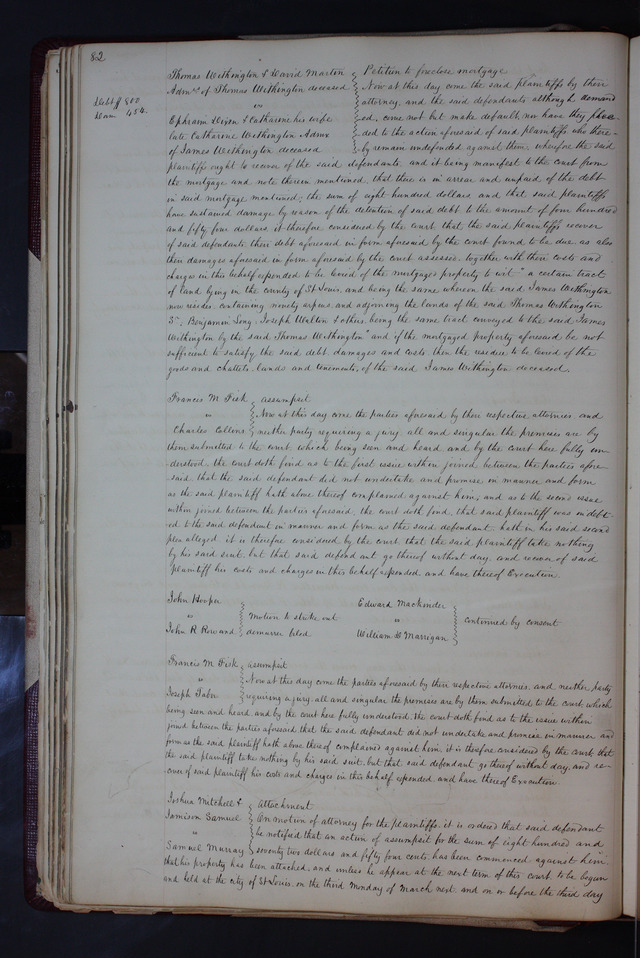 82
Thomas Withington & David Marton Petition to foreclose mortgage
Adm.rs of Thomas Withington deceased Now at this day come the said plaintiffs by their
Debt $ 800 vs attorney, and the said defendants although demand
Dam 454. Ephraim Dixon & Catharine his wife ed, come not but make default nor have they plea-
late Catharine Withington Admx ded to the action aforesaid of said plaintiffs who there-
of James Withington deceased by remain undefended against them wherefore the said
plaintiffs ought to recover of the said defendants and it being manifest to the court from
the mortgage and note therein mentioned, that there is in arrear and unpaid of the debt
in said mortgage mentioned; the sum of eight hundred dollars and that said plaintiffs
have sustained damage by reason of the detention of said debt to the amount of four hundred
and fifty four dollars it therefore considered by the court that the said plaintiffs recover
of said defendants their debt aforesaid in form aforesaid by the court found to be due as also
their damages aforesaid in form aforesaid by the court assessed. together with their costs and
charges in this behalf expended to be levied of the mortgage property to wit "a certain tract
of land lying in the county of St Louis, and being the same whereon the said James Withington
now resides containing ninety arpens and adjoining the lands of the said Thomas Withington
Benjamin Long Joseph Walton & others, being the same tract conveyed to the said James
Withington by the said Thomas Withington" and if the mortgaged property aforesaid be not
sufficient to satisfy the said debt damages and costs, then the residue to be levied of the
goods and chattels lands and tenements, of the said James Withington deceased.
Francis M. Fisk assumpsit
vs Now at this day come the parties aforesaid by their respective attornies and
Charles Collins neither party requiring a jury. all and singular the premises are by
them submitted to the court which being seen and heard and by the court here fully un-
derstood. the court doth find as to the first issue within joined between the parties afore
said. that the said defendant did not undertake and promise in manner and form
as the said plaintiff hath above thereof complained against him, and as to the second issue
within joined between the parties aforesaid. the court doth find, that said plaintiff was indebt
ed to the said defendant in manner and form as the said defendant hath in his said second
plea alleged it is therefore considered by the court that the said plaintiff take nothing
by his said suit. but that said defendant go thereof without day. and recover of said
plaintiff his costs and charges in this behalf expended. and have thereof Execution.
John Hooper Edward Mackinder
vs motion to strike out vs continued by consent
John R Rowand demurrer filed William H Marrigan
Francis M. Fisk assumpsit
vs Now at this day come the parties aforesaid by their respective attornies. and neither party
Joseph requiring a jury. all and singular the premises are by them submitted to the court which
being seen and heard and by the court here fully understood. the court doth find as to the issue within
joined between the parties aforesaid. that the said defendant did not undertake and promise in manner and
form as the said plaintiff hath above thereof complained against him. it is therefore considered by the court that
the said plaintiff take nothing by his said suit. but that said defendant go thereof without day. and re-
cover of said plaintiff his costs and charges in this behalf expended. and have thereof Execution
Joshua Mitchell & Attachment
Jamison Samuel On motion of attorney for the plaintiffs. it is ordered that said defendant
vs be notified that an action of assumpsit for the sum of eight hundred and
Samuel Murray seventy two dollars and fifty four cents, has been commenced against him
that his property has been attached, and unless he appear at the next term of this court. to be begun
and held at the city of St Louis. on the third Monday of March next. and on or before the third day